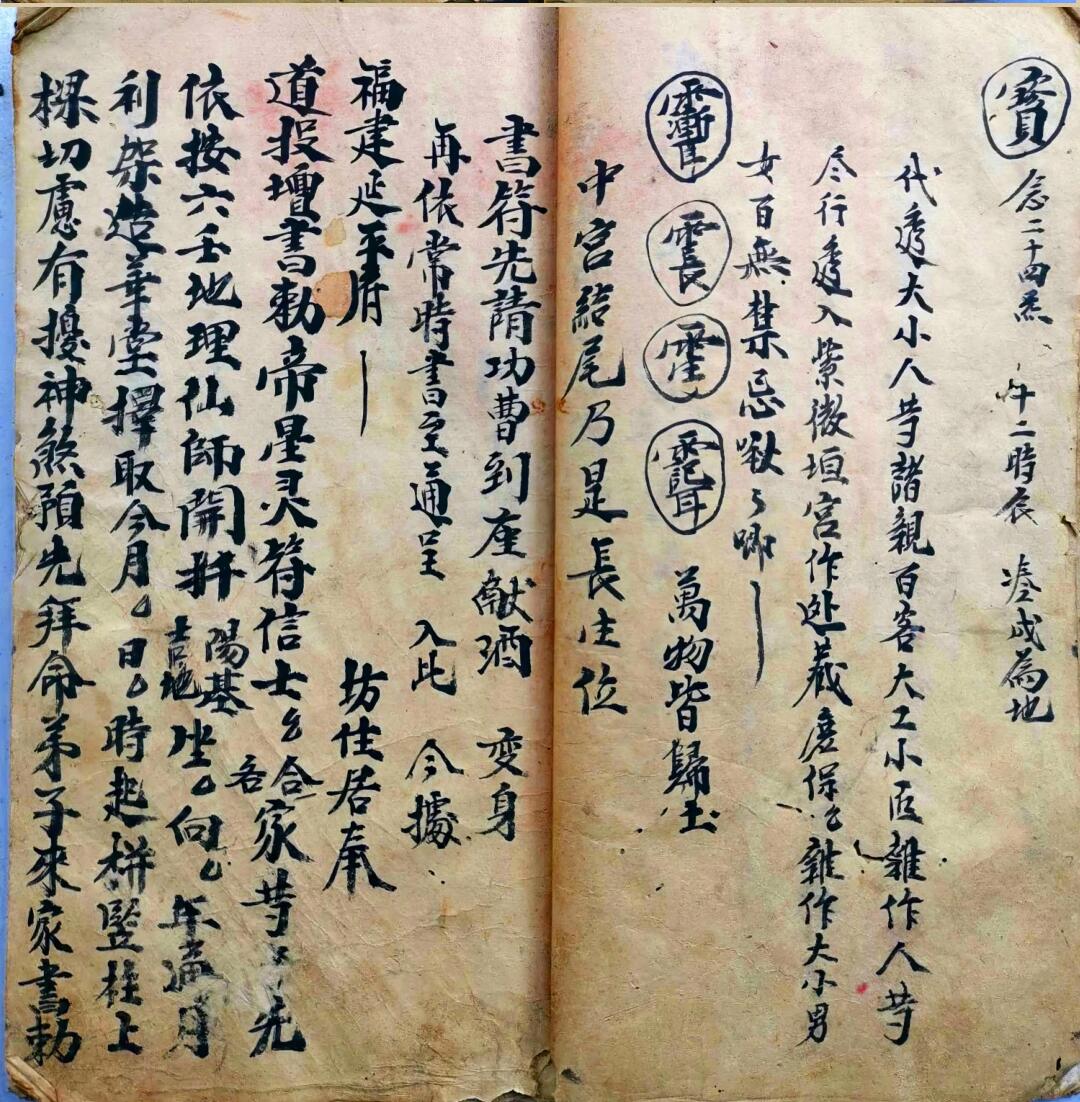 寶 念二十四炁 午二時辰 塗成為地
代透大小人等諸親百客大工小匠雜作人等
尽行透入紫微垣宮作处藏產保厶雜作大小男
女百無禁忌啾々唧丨
萬物皆歸土
中宮給尾乃是長生位
書符先請功曹到座献酒 变身
再依常時書完通呈 入比 今據
福建延平府丨 坊住居奉
道投壇書勅帝星灵符信士厶合家等 先
依按六壬地理仙師開拆陽基吉地坐厶向厶年 月
利架造華堂擇取今月厶日厶時起栟竪柱上
樑切慮有擾神煞預先拜命弟子來家書勅